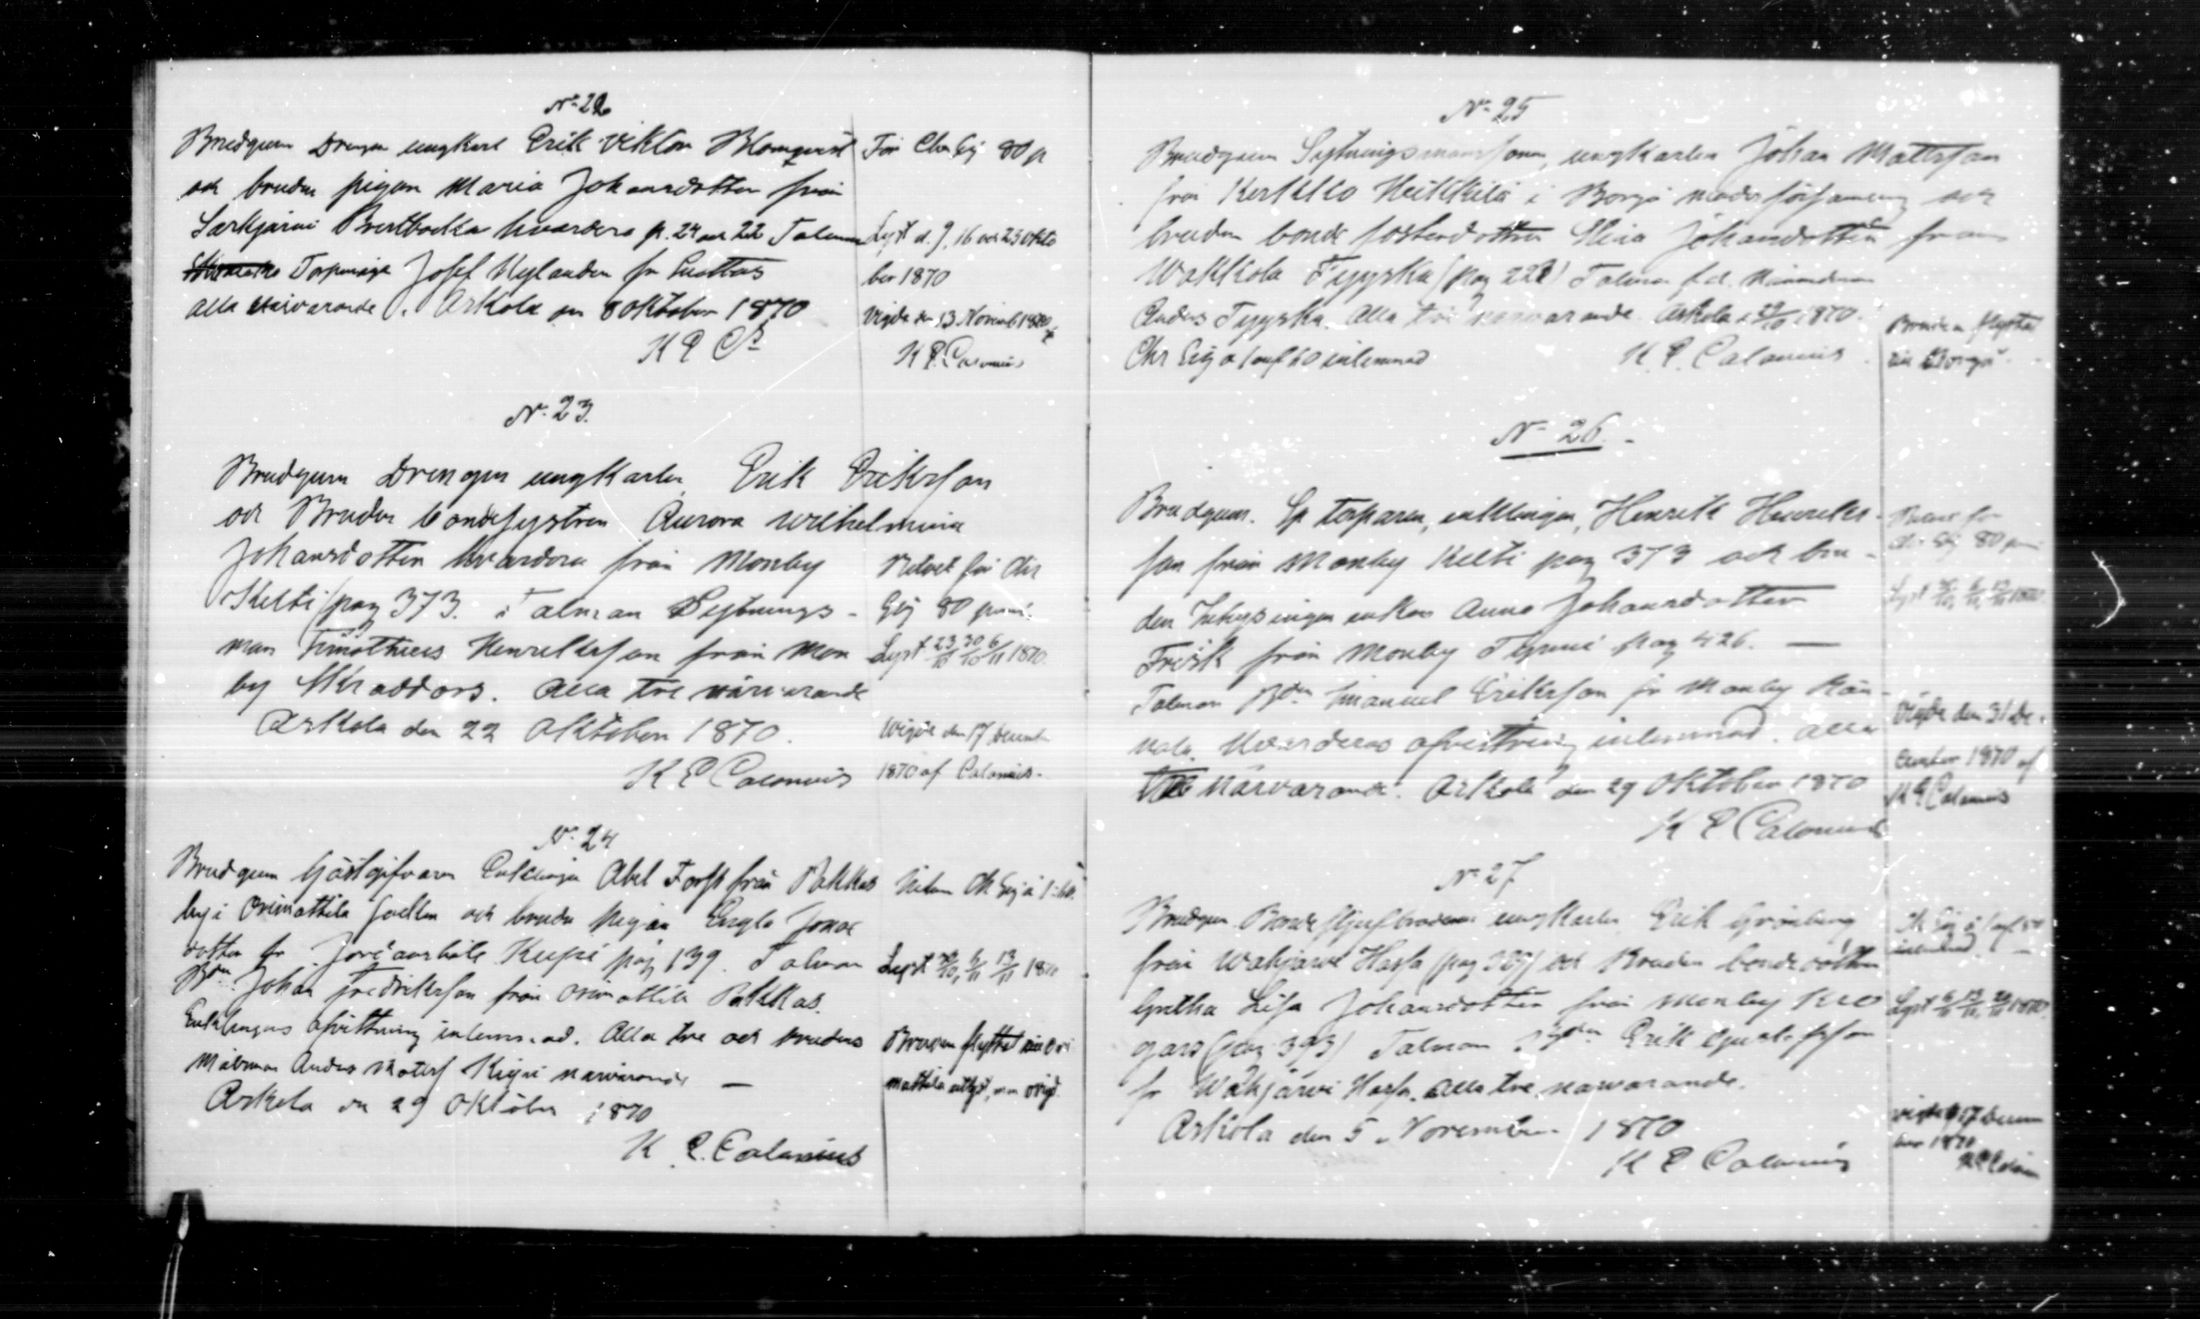 No 22
Brudgum Drengen ungkarl Erik Viktor Blomqvist
och bruden pigan Maria Johansdotter från
Särkjärvi Brertbacka hvardera p. 24 och 22 Talman
Torparen Josef Nylander fr
alla närvarande. Askola den 8 Oktober 1870
K E Cs
För Chr Eij 80 p
Lyst d. 9, 16 och 23 Okto
ber 1870
Vigde den 13 Novemb 1870
K E. Calonius
No 23.
Brudgum Drengen ungkarlen Erik Eriksson
och Bruden bondesystren Aurora Wilhelmina
Johansdotter hvardera från Monby
Kelti (pag 373. Talman Sytnings-
man Timotheus Henriksson från Mon
by Skraddars. Alla tre närvarande
Askola den 22 Oktober 1870.
K E Calonius
för Chr
Eij 80 penni.
Lyst 23/10 30/10 6/11 1870.
Wigde den 17 Decemb
1870 af Calonius.
No 24
Brudgum Gästgifvaren Enklingen Abel Forss från Pakkas
by i Orimattila socken och bruden pigan Engla Jonas
dotter fr. Kupi pag 139. Talman
Bdn Johan Fredriksson från Orimattila Pakkas.
Enklingens afvittring inlemnad. Alla tre och brudens
Målsman Anders Matss närvarande —
Askola den 29 Oktober 1870
K. E. Calonius
Chr Eij à 1:60.
Lyst 30/10, 6/11 13/11 1870
Bruden flyttat till Ori
mattila
No 25
Brudgum Sytningsmanssonen, ungkarlen Johan Mattsson
från Kerkkoo Heikkilä i Borgå moderförsamling och
bruden bonde fosterdottren Stina Johansdotter från
Wakkola Tyyska (pag 221) Talman f.d. Nämndeman
Anders Tyyska. Alla tre närvarande. Askola d 29/10 1870.
Chr Eij a 1 mf 60 inlemnad
K. E. Calonius
Bruden flyttat
till Borgå
No 26.
Brudgum. Sp torparen, enklingen, Henrik Henriks-
son från Monby Kelti pag 373 och bru-
den Inhysingen enkan Anna Johansdotter
Frisk från Monby pag 426. —
Talman Bdn Emanuel Eriksson fr Monby
nala. Hvarderas afvittring inlemnad. Alla
tre närvarande. Askola den 29 Oktober 1870
K E Calonius
Chr Eij 80 penni
Lyst 30/10, 6/11, 13/11 1870.
Vigde den 31 De-
cember 1870 af
K E Calonius
No 27
Brudgum Bonde styfbrodren ungkarlen Erik Grönberg
från Wahijärvi Harsa (pag 327) och Bruden bondedottren
Gretha Lisa Johansdotter från Monby
gars (pag 393) Talman Erik Gustafsson
fr Wahijärvi Harsa. Alla tre närvarande.
Askola den 5 November 1870
K E Calonius
Chr Eij à 1 mf 60
inlemnad
Lyst 6/11, 13/11, 20/11 1870.
Vigde d 17 Decem
ber 1870
K E Calonius